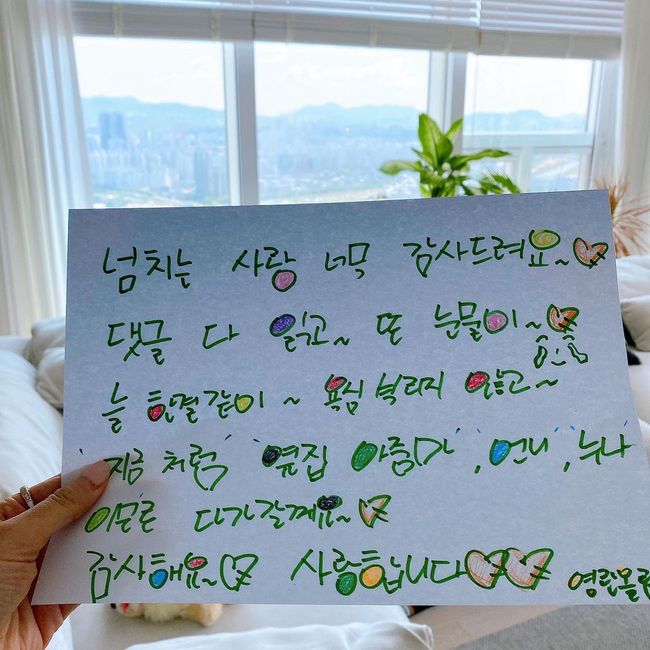 넘치는 사랑 너무 감사드려요~
댓글 다 읽고~ 또 눈물이~
늘 한결같이~ 욕심 부리지 않고~
'지금처럼' '옆집 아줌마', '언니', '누나'
'이모'로 다가갈께요~
감사해요~ 사랑합니다